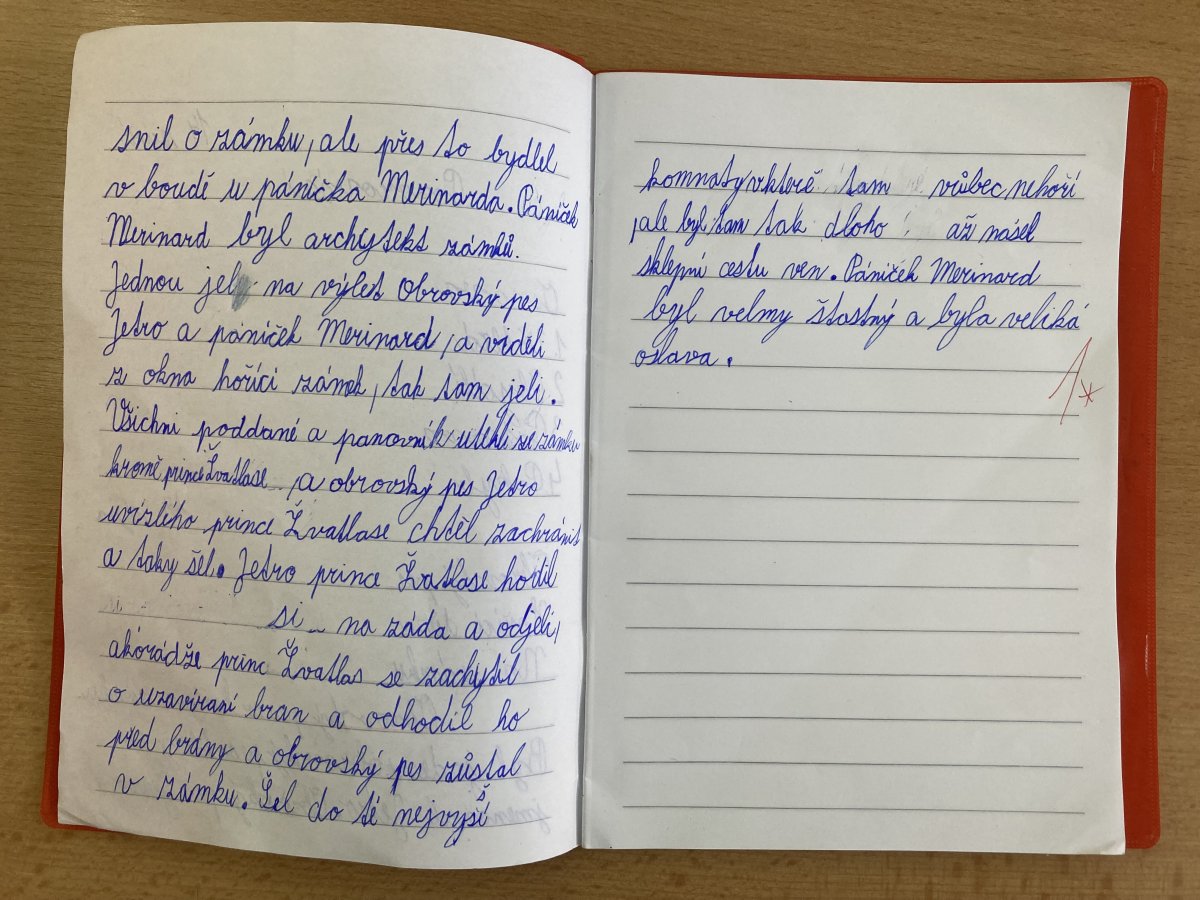 snil o zámku, ale přes to bydlel
v boudě u páníčka Merinarda. Páníček
Merinard byl archytekt zámků.
Jednou jel na výlet Obrovský pes
Jetro a páníček Merinard, a viděli
z okna hořící zámek, tak tam jeli.
Všichni poddané a panovník utekli se zámku
kromě prince Žvatlase, a obrovský pes Jetro
uvízlého prince Žvatlase chtěl zachránit
a taky šel. Jetro prince Žvatlase hodil
si na záda a odjeli,
akorádže princ Žvatlas se zachytil
o uzavíraní bran a odhodil ho
před brány a obrovský pes zůstal
v zámku. Šel do té nejvyšší
komnaty vkterě tam vůbec nehoří
, ale byl tam tak dloho až našel
sklepní cestu ven. Páníček Merinard
byl velmy štastný a byla veliká
oslava.
1*